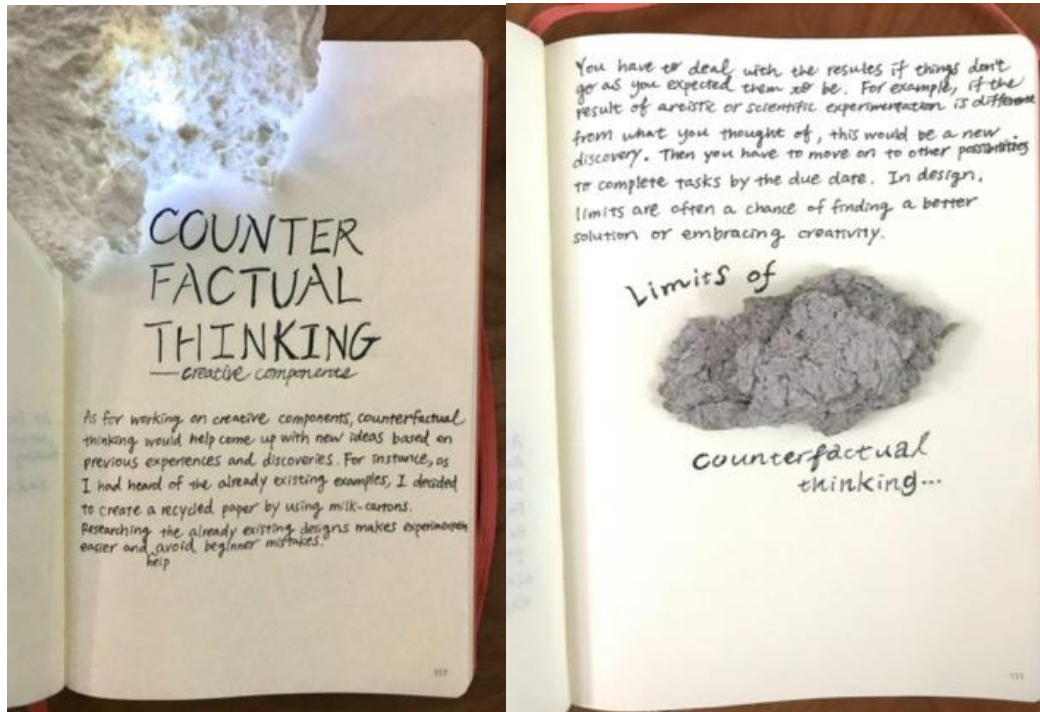 COUNTER
FACTUAL
THINKING
— creative components
As for working on creative components, counterfactual
thinking would help come up with new ideas based on
previous experiences and discoveries. For instance, as
I had heard of the already existing examples, I decided
to create a recycled paper by using milk-cartons.
Researching the already existing designs makes
easier and avoid beginner mistakes.
help
You have to deal with the results if things don't
go as you expected them to be. For example, if the
result of artistic or scientific experimentation is different
from what you thought of, this would be a new
discovery. Then you have to move on to other possibilities
to complete tasks by the due date. In design,
limits are often a chance of finding a better
solution or embracing creativity.
Limits of
counterfactual
thinking...